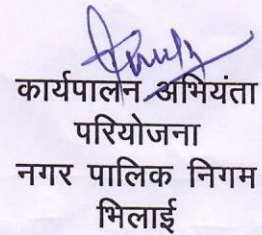 कार्यपालन अभियंता
परियोजना
नगर पालिक निगम
भिलाई